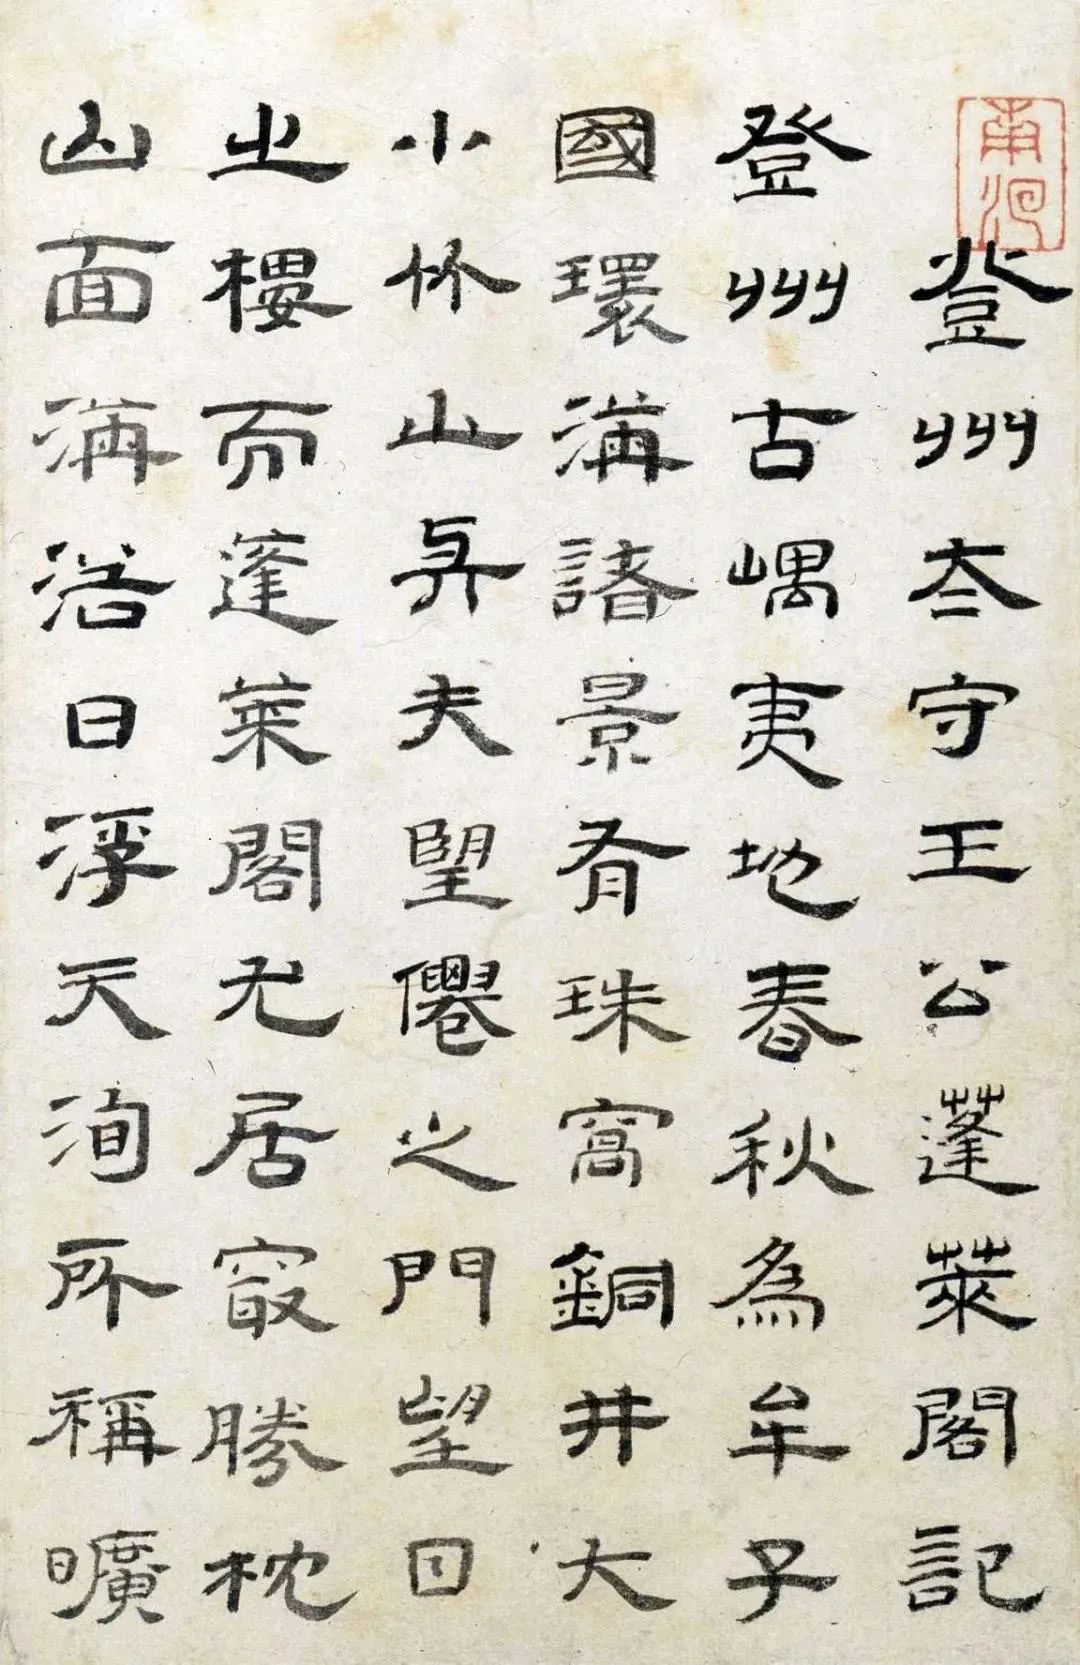 登州夳守王公蓬萊閣記
登州古嵎夷地春秋為牟子
國環海諸景有珠窩銅井大
小竹山與夫朢僊之門望日
之樓而蓬萊閣尤居㝡勝枕
山面海浴日浮天洵所稱曠